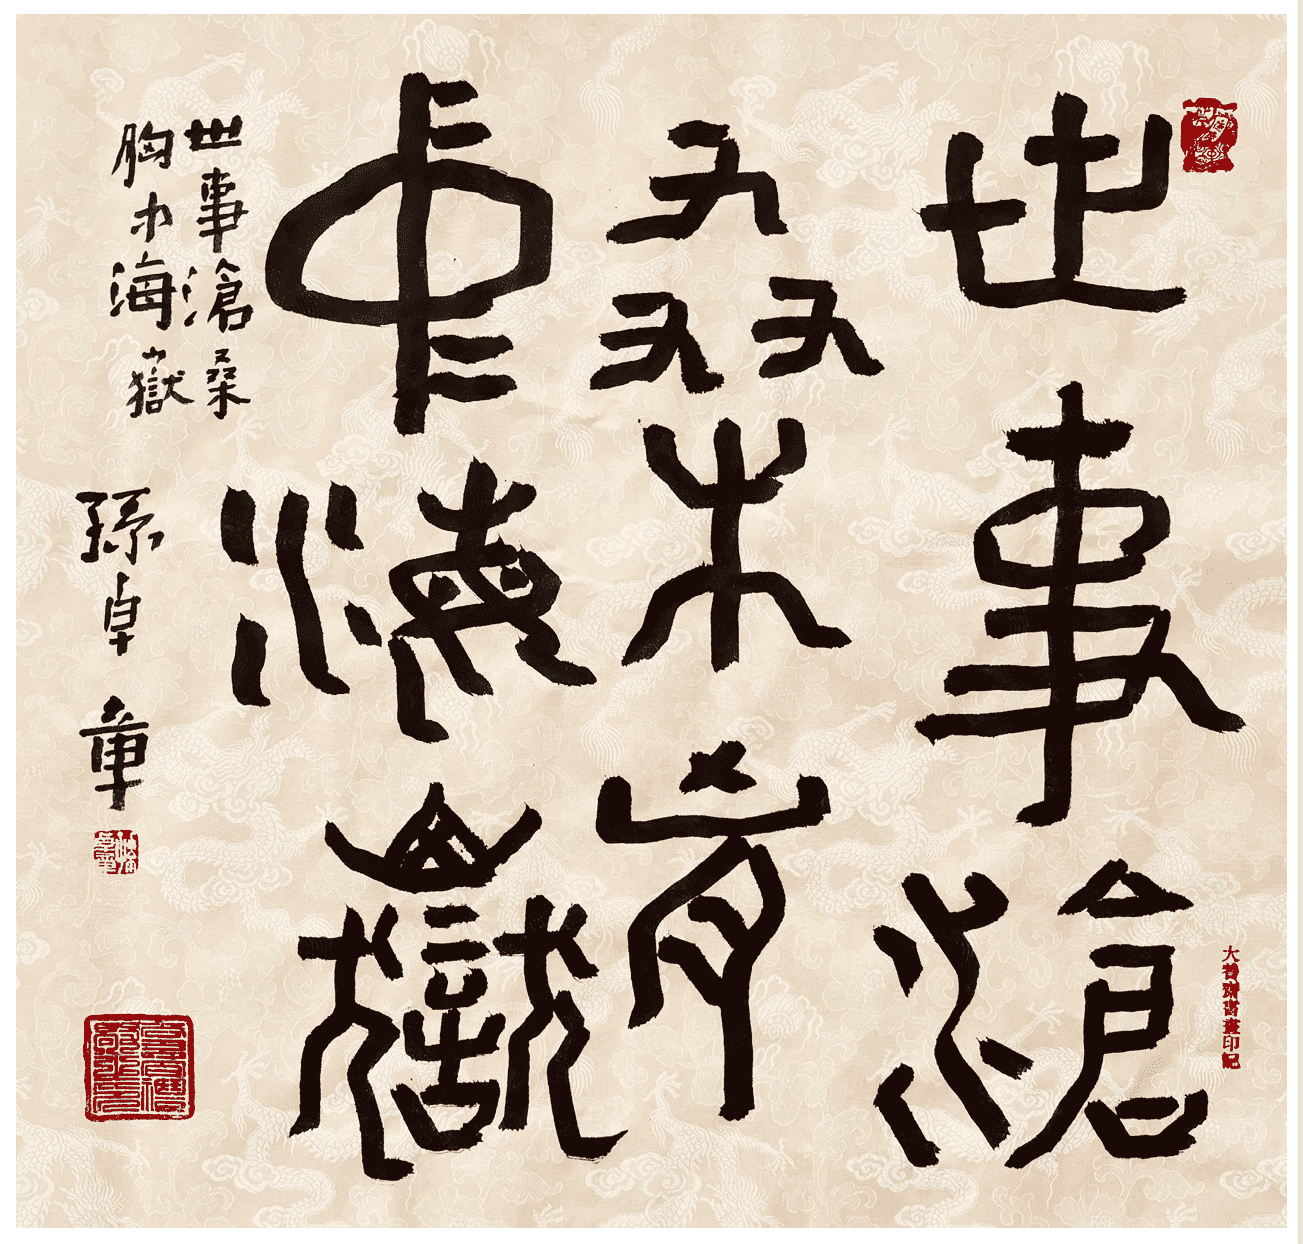 世事滄
桑胸
中海嶽
世事滄桑
胸中海嶽
孫卓章
書畫印記